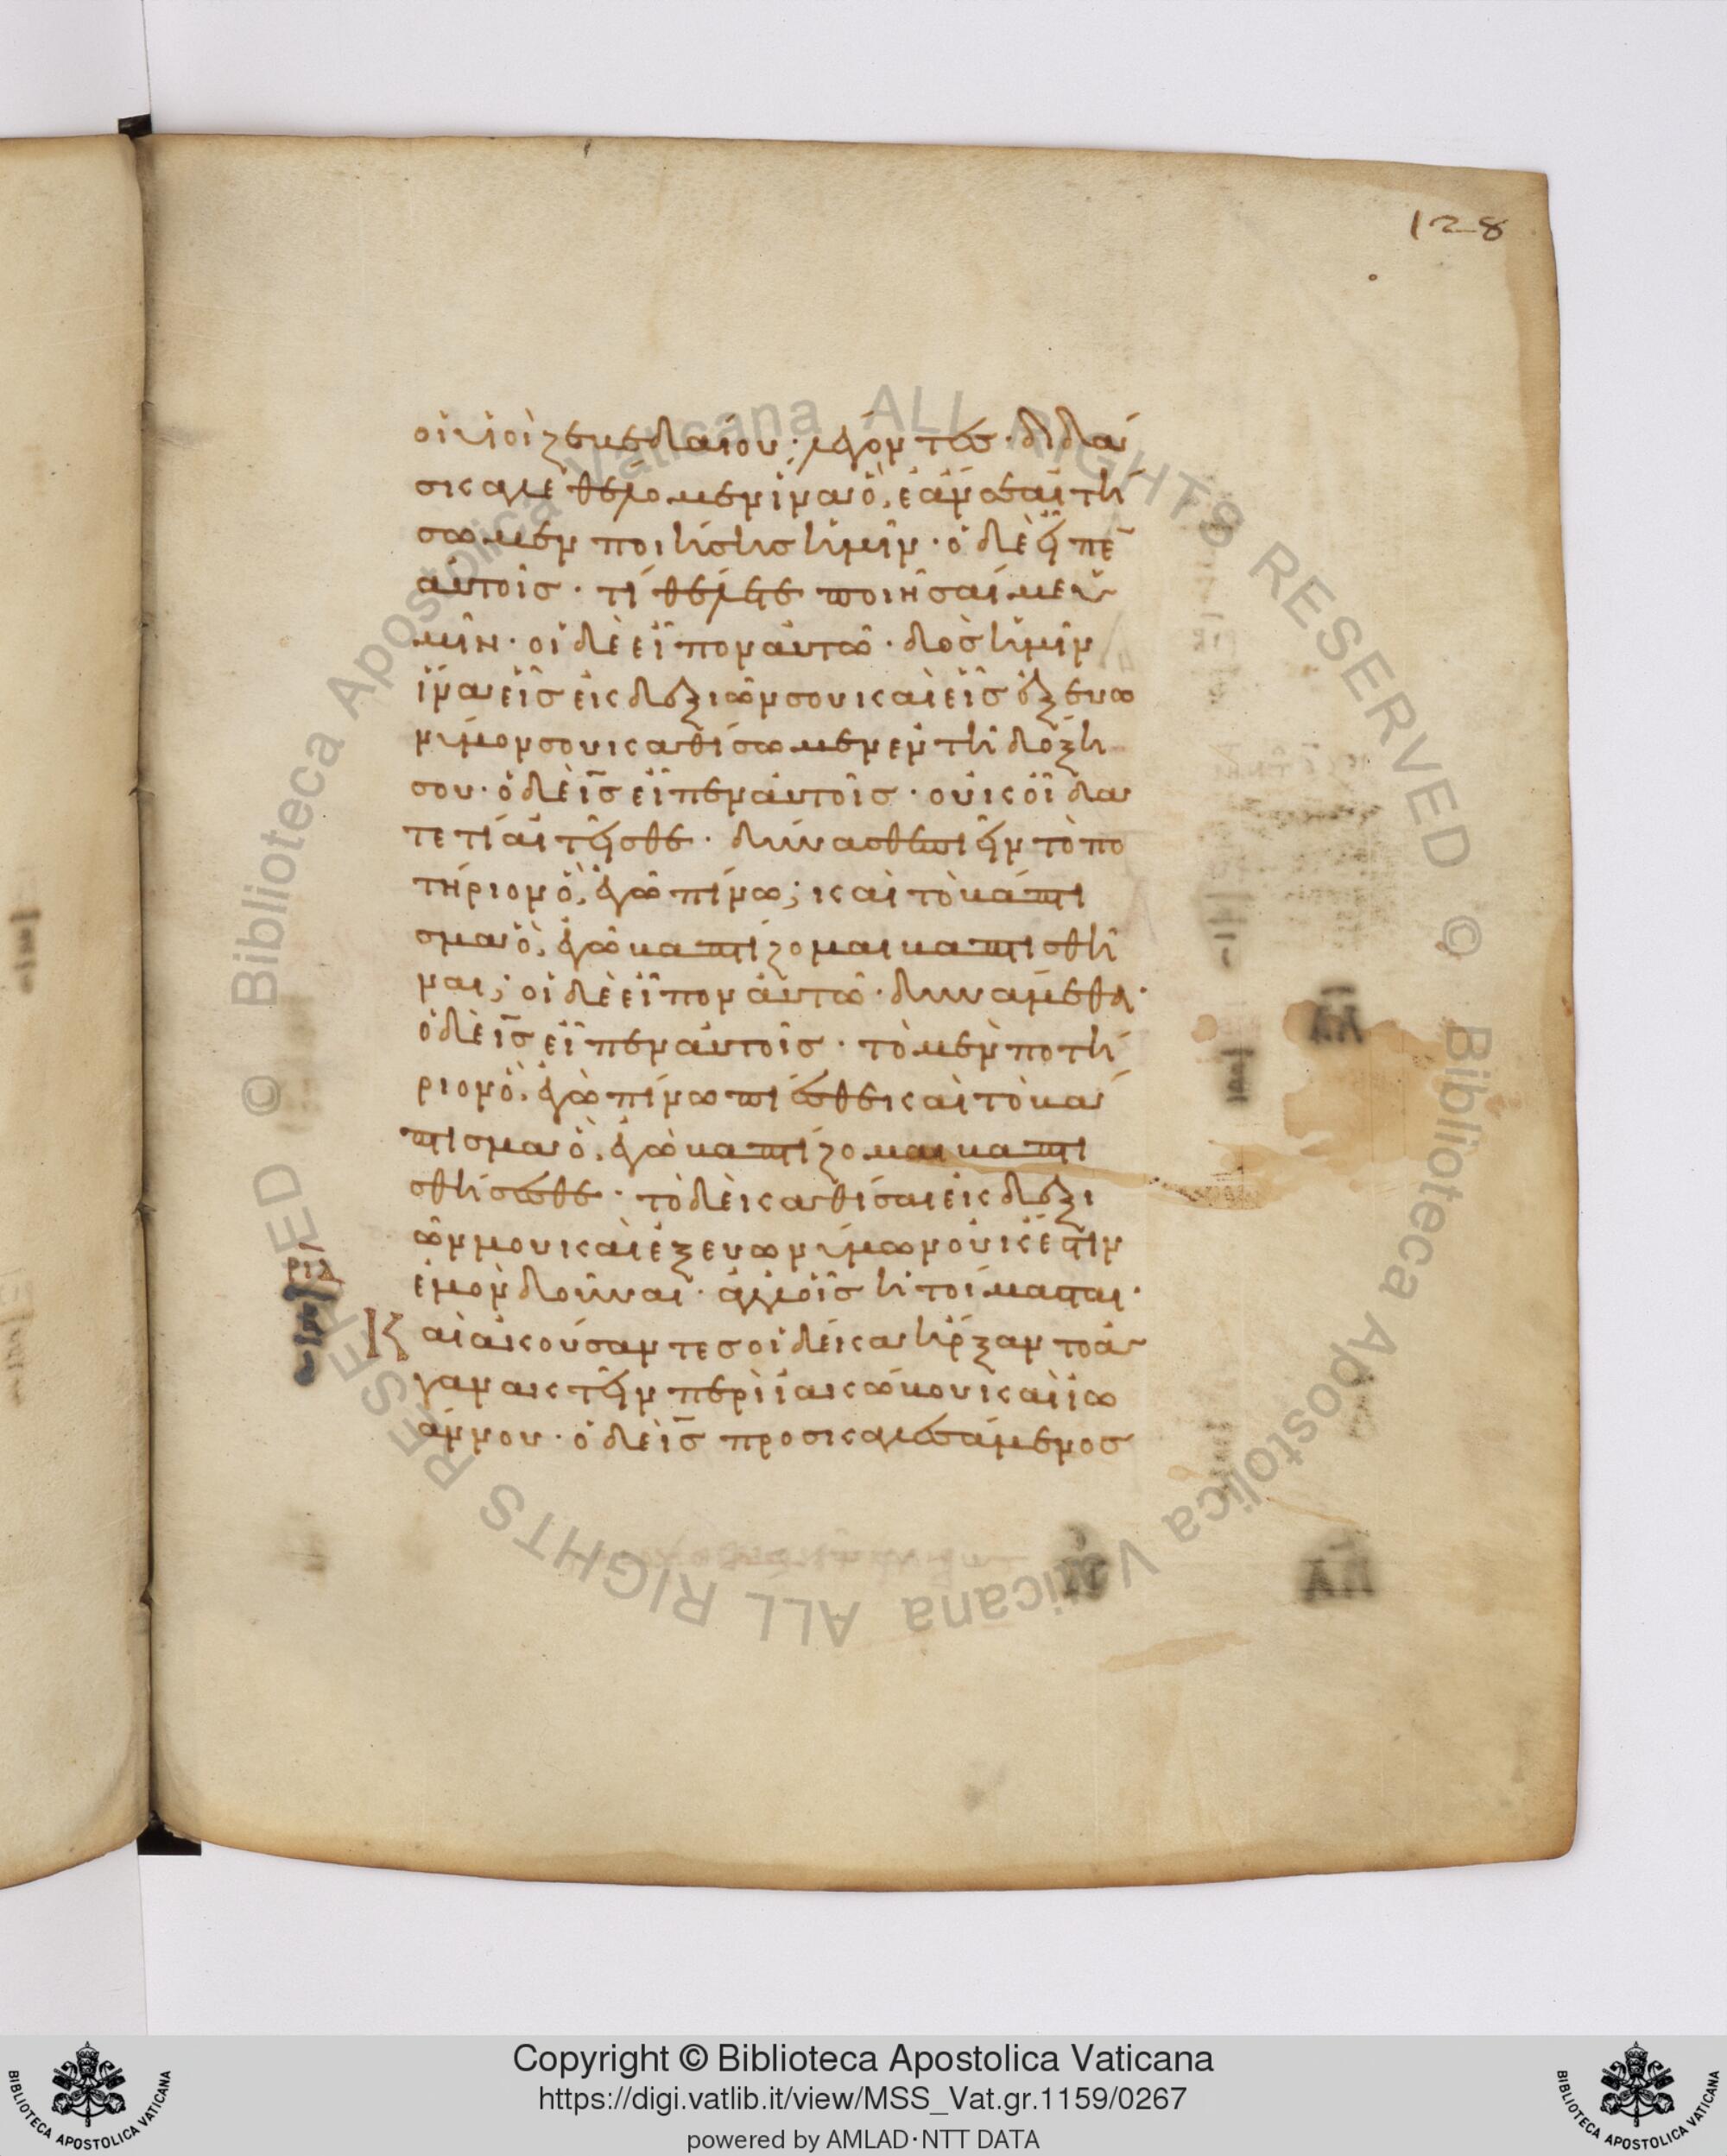 128
οἱ υἱοὶ ζεβεδαίου· λέγοντες· διδά
σκαλε θέλομεν ἵνα ὃ ἐὰν αἰτή
σωμεν ποιήσης ἡμῖν· ὁ δὲ εἶπε
αὐτοῖς· τί θέλετε ποιῆσαί με ὑ
μῖν· οἱ δὲ εἶπον αὐτῶ· δὸς ἡμῖν
ἵνα εἷς ἐκ δεξιῶν σου καὶ εἷς ἐξ εὐω
νύμων σου καθίσωμεν ἐν τῆ δόξη
σου· ὁ δὲ ις εἶπεν αὐτοῖς· οὐκ οἴδα
τε τί αἰτεῖσθε· δύνασθε πιεῖν τὸ πο
τήριον ὃ ἐγὼ πίνω; καὶ τὸ βάπτι
σμα ὃ ἐγὼ βαπτίζομαι βαπτισθῆ
ναι; οἱ δὲ εἶπον αὐτῶ· δυνάμεθα·
ὁ δὲ ις εἶπεν αὐτοῖς· τὸ μὲν ποτή
ριον ὃ ἐγὼ πίνω πίεσθε καὶ τὸ βά
πτισμα ὃ ἐγὼ βαπτίζομαι βαπτι
σθήσεσθε· τὸ δὲ καθίσαι ἐκ δεξι
ῶν μου καὶ ἐξ εὐωνύμων οὐκ ἔστιν
ἐμὸν δοῦναι· ἀλλ' οἷς ἡτοίμασται·
Καὶ ἀκούσαντες οἱ δέκα ἤρξαντο ἀ
γανακτεῖν περὶ ἰακώβου καὶ ἰω
άννου· ὁ δὲ ις προσκαλεσάμενος
© Biblioteca Apostolica Vaticana ALL RIGHTS RESERVED © Biblioteca Apostolica Vaticana ALL RIGHTS RESERVED
Copyright © Biblioteca Apostolica Vaticana
https://digi.vatlib.it/view/MSS_Vat.gr.1159/0267
powered by AMLAD·NTT DATA
BIBLIOTECA APOSTOLICA VATICANA
BIBLIOTECA APOSTOLICA VATICANA